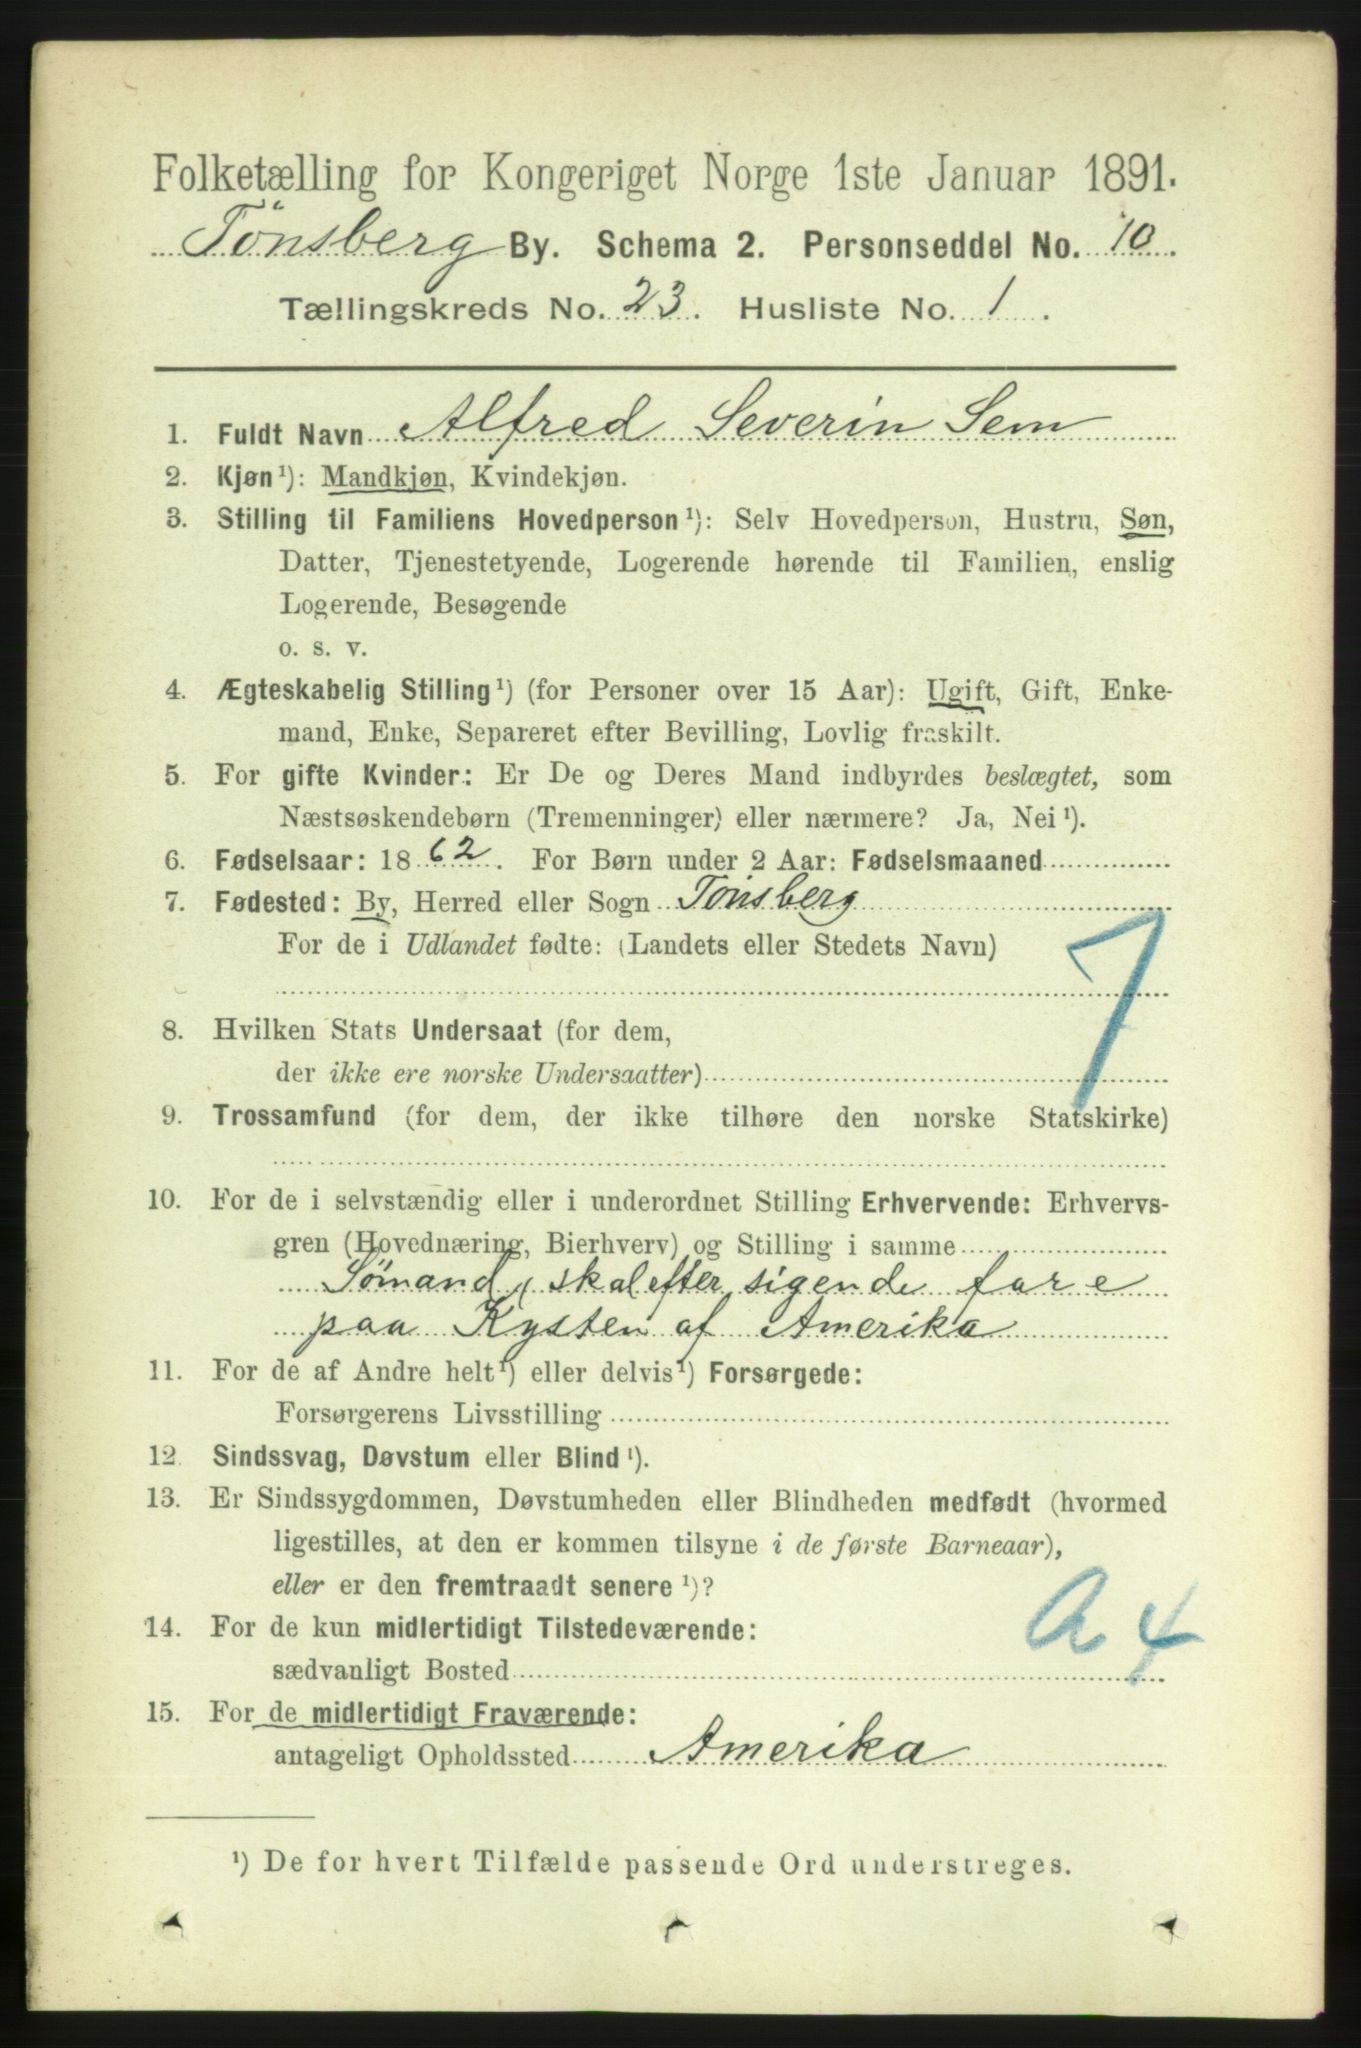 Folketælling for Kongeriget Norge 1ste Januar 1891.
Tönsberg By. Schema 2. Personseddel No. 10.
Tællingskreds No. 23. Husliste No. 1.
1. Fuldt Navn Alfred Severin Sem
2. Kjøn ¹): Mandkjøn, Kvindekjøn.
3. Stilling til Familiens Hovedperson ¹): Selv Hovedperson, Hustru, Søn,
Datter, Tjenestetyende, Logerende hørende til Familien, enslig
Logerende, Besøgende
o. s. v.
4. Ægteskabelig Stilling ¹) (for Personer over 15 Aar): Ugift, Gift, Enke-
mand, Enke, Separeret efter Bevilling, Lovlig fraskilt.
5. For gifte Kvinder: Er De og Deres Mand indbyrdes beslægtet, som
Næstsøskendebørn (Tremenninger) eller nærmere? Ja, Nei ¹).
6. Fødselsaar: 1862. For Børn under 2 Aar: Fødselsmaaned
7. Fødested: By, Herred eller Sogn Tönsberg
For de i Udlandet fødte: (Landets eller Stedets Navn)
7
8. Hvilken Stats Undersaat (for dem,
der ikke ere norske Undersaatter)
9. Trossamfund (for dem, der ikke tilhøre den norske Statskirke)
10. For de i selvstændig eller i underordnet Stilling Erhvervende: Erhvervs-
gren (Hovednæring, Bierhverv) og Stilling i samme
Sömand, skal efter sigende fare
paa Kysten af Amerika
11. For de af Andre helt ¹) eller delvis ¹) Forsørgede:
Forsørgerens Livsstilling
12. Sindssvag, Døvstum eller Blind ¹).
13. Er Sindssygdommen, Døvstumheden eller Blindheden medfødt (hvormed
ligestilles, at den er kommen tilsyne i de første Barneaar),
eller er den fremtraadt senere ¹)?
14. For de kun midlertidigt Tilstedeværende:
sædvanligt Bosted
a 4
15. For de midlertidigt Fraværende:
antageligt Opholdssted Amerika
¹) De for hvert Tilfælde passende Ord understreges.